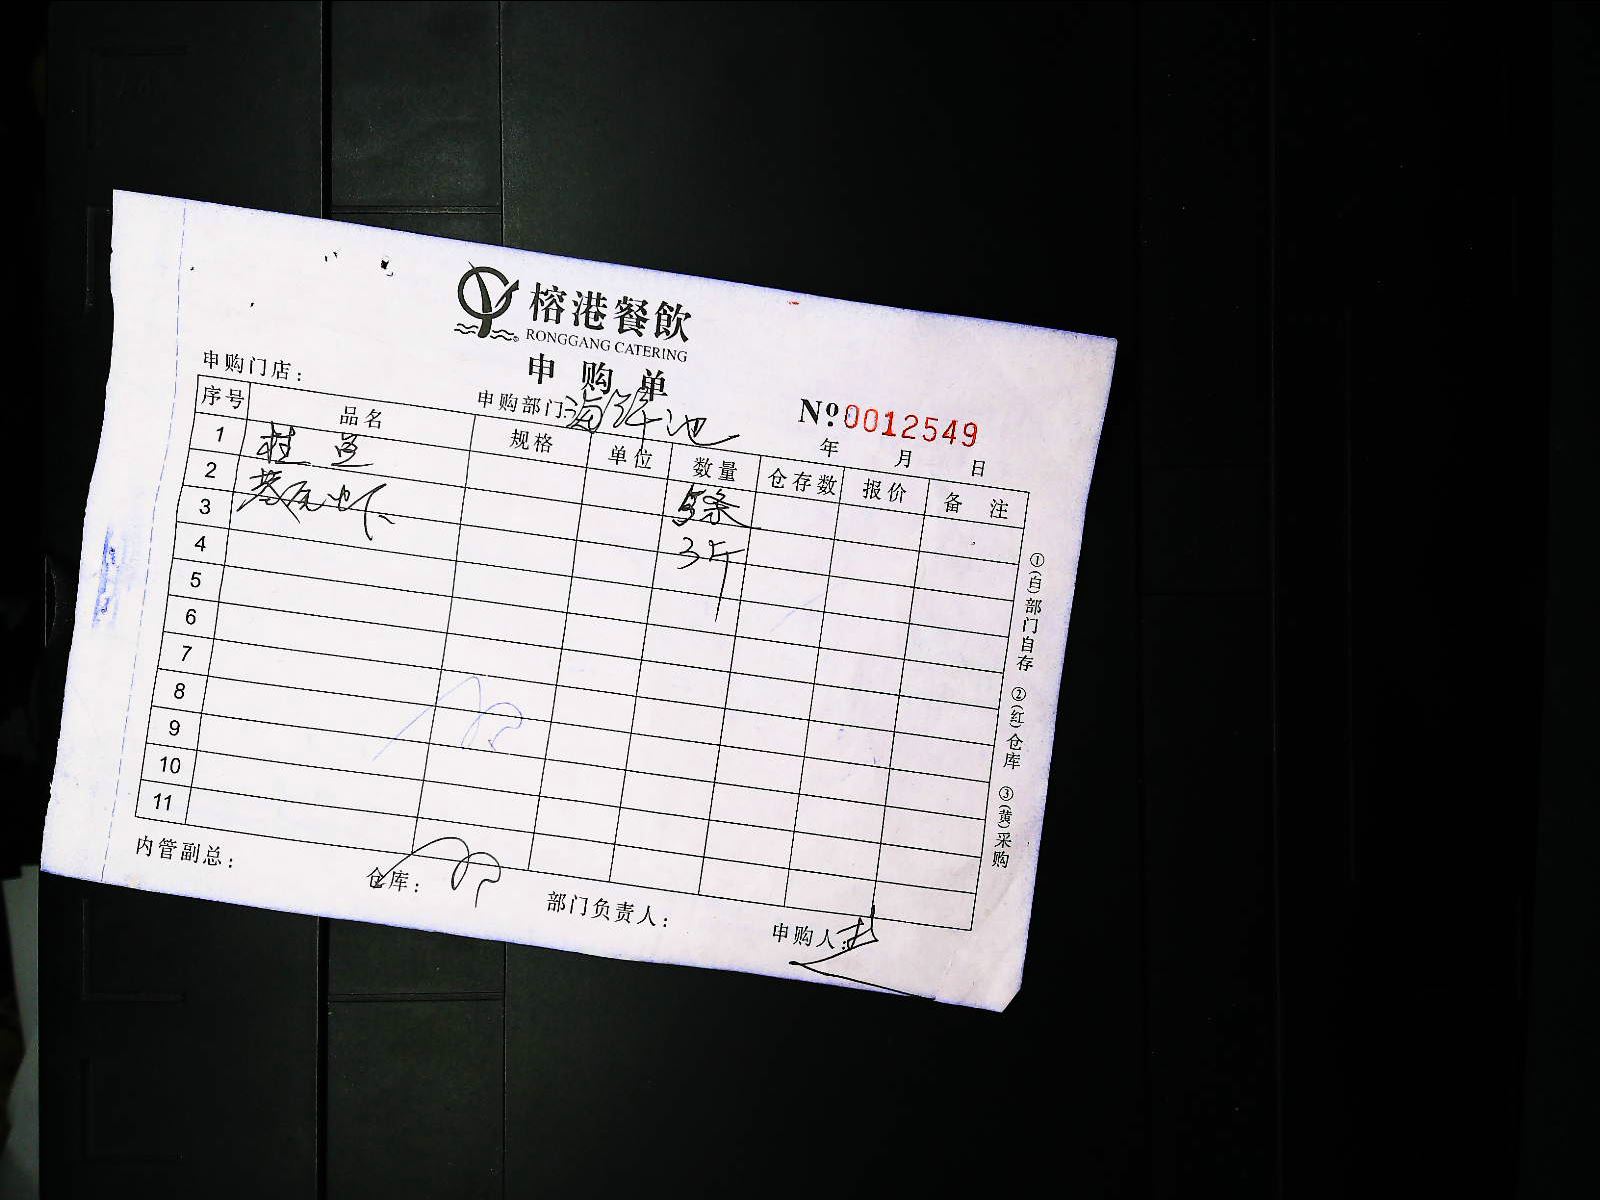 榕港餐飲
RONGGANG CATERING
申购单
申购门店：
申购部门：海鲜池
№ 0012549
年 月 日
序号 品名 规格 单位 数量 仓存数 报价 备注
1 桂鱼 5条
2 基尾虾 3斤
3
4
5
6
7
8
9
10
11
①(白)部门自存 ②(红)仓库 ③(黄)采购
内管副总： 仓库： 部门负责人： 申购人：